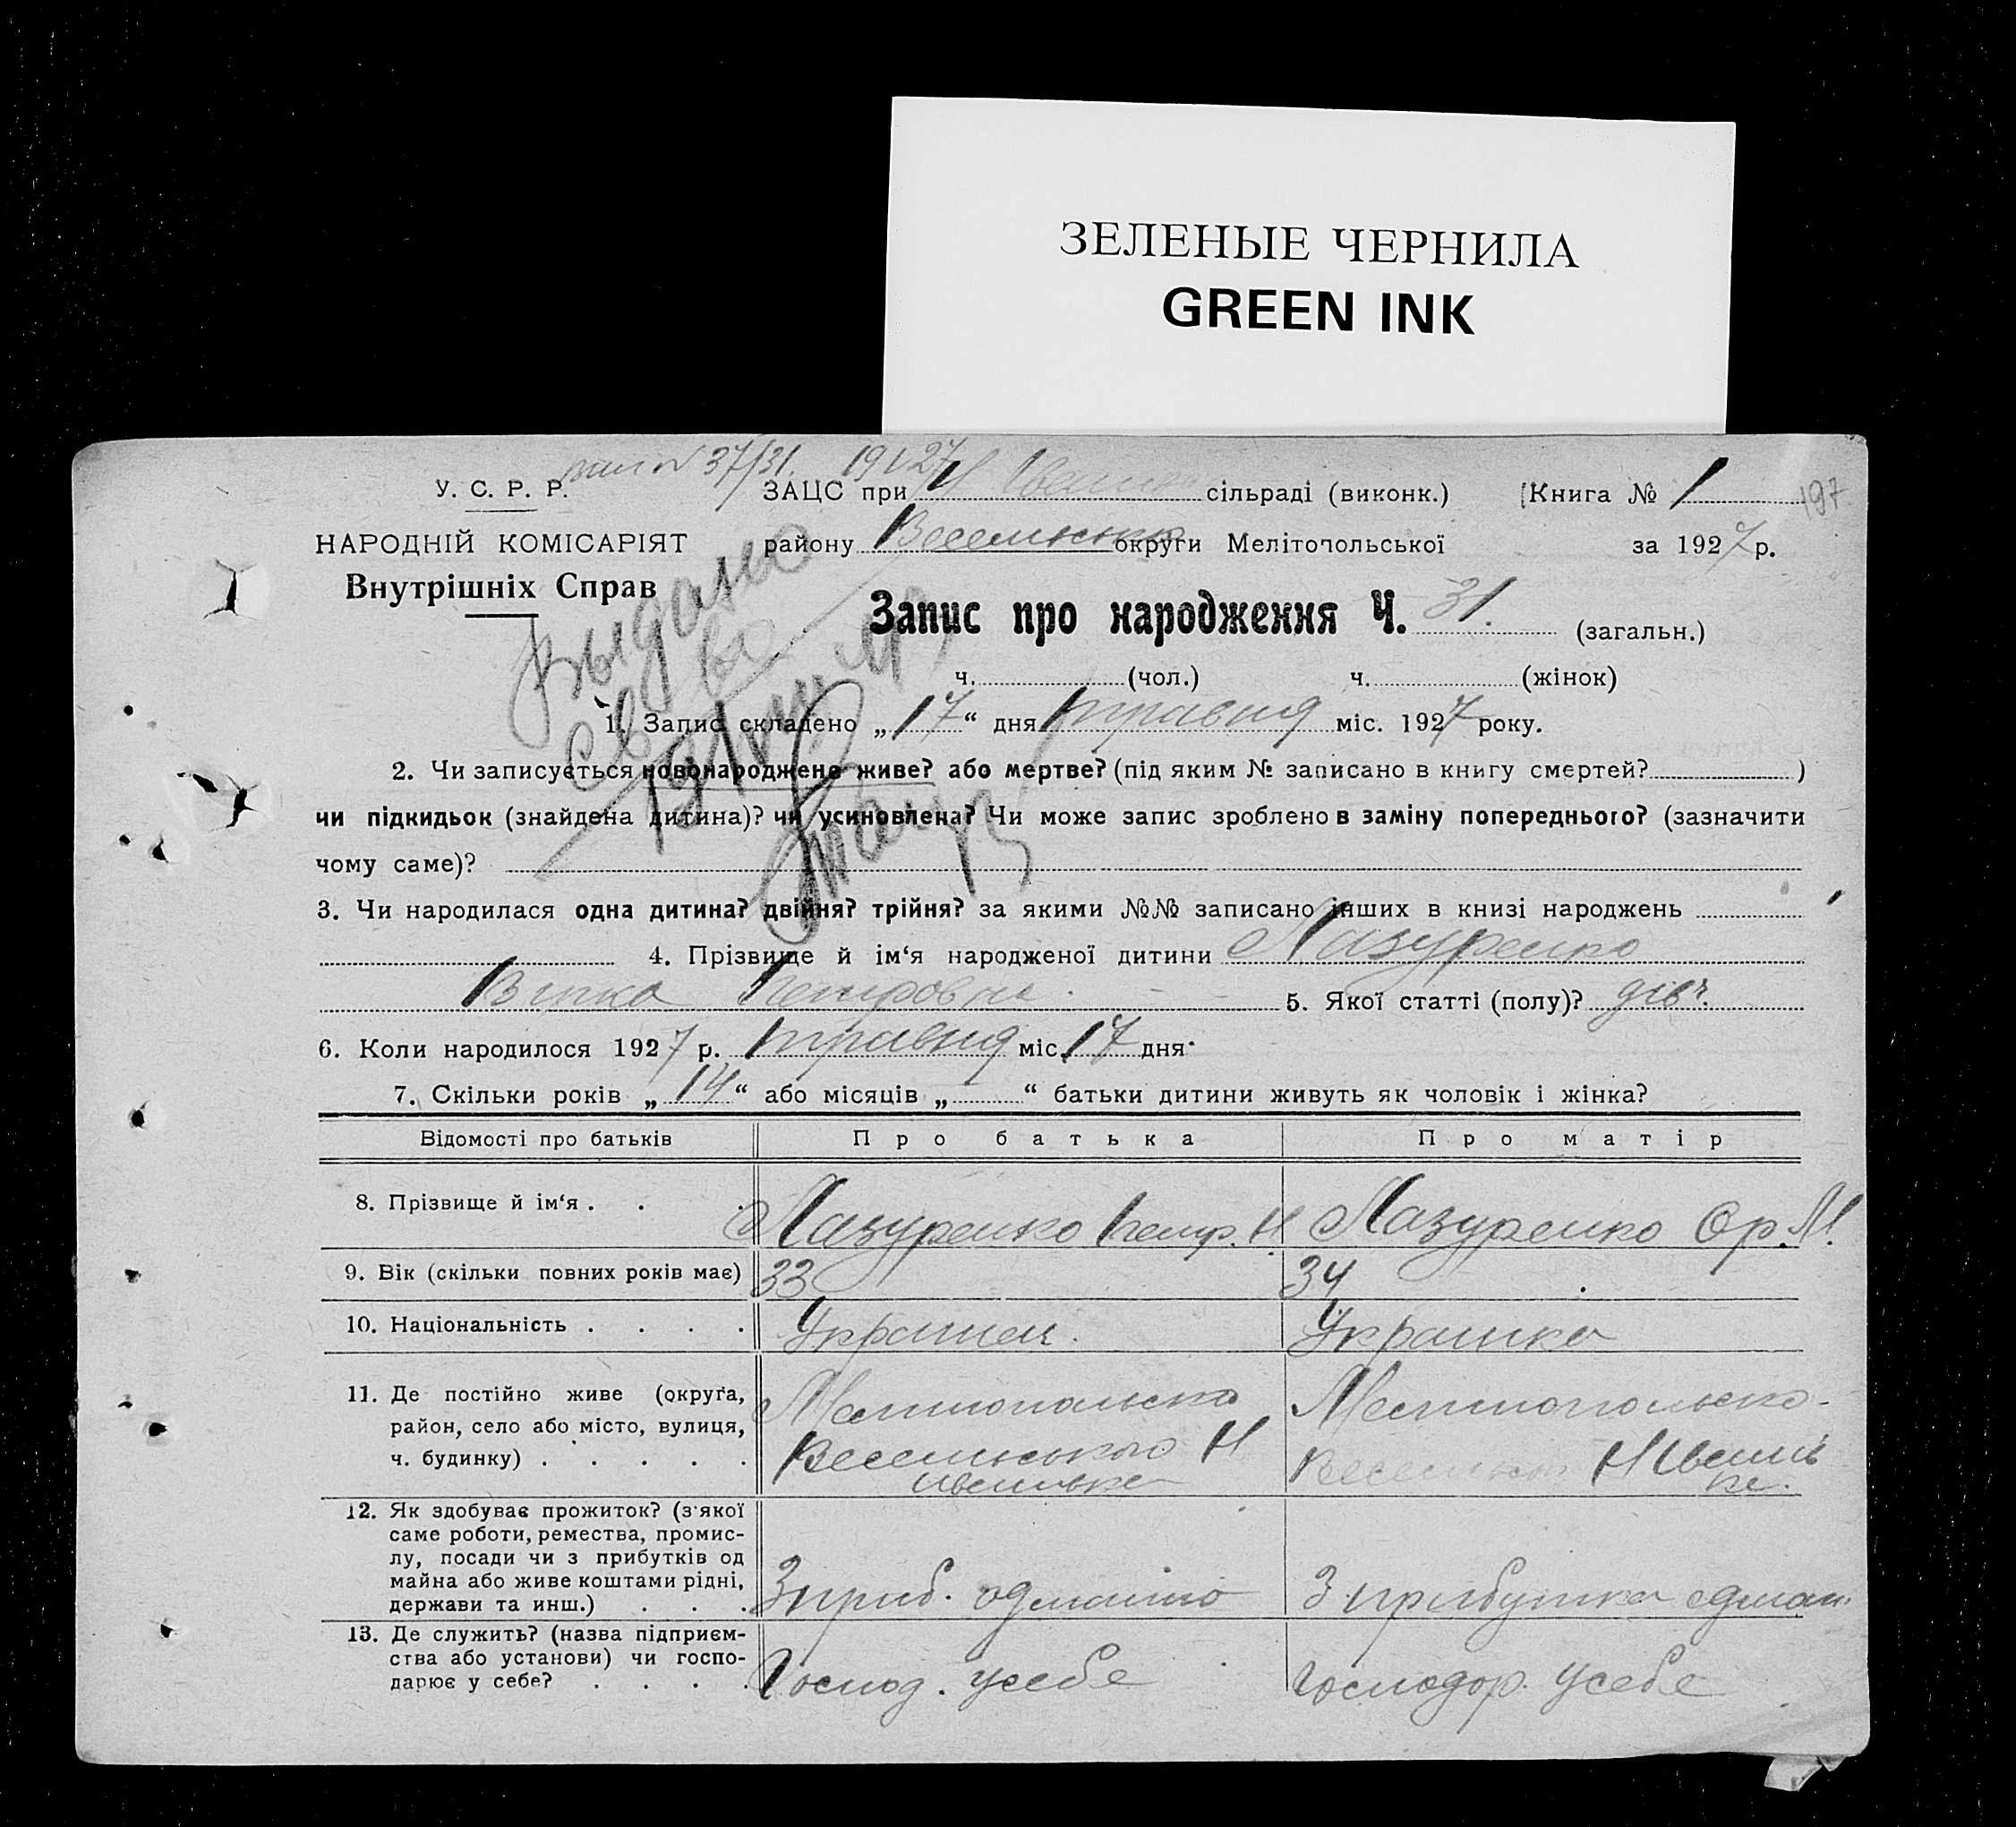 ЗЕЛЕНЫЕ ЧЕРНИЛА
GREEN INK
37/31.
У. С. Р. Р.
ЗАЦС при Н сільраді (виконк.) Книга № 1
197
НАРОДНІЙ КОМІСАРІЯТ
району округи Мелітопольської за 1927 р.
Внутрішніх Справ
Выдано
Запис про народження Ч. 31. (загальн.)
ч. (чол.) ч. (жінок)
1. Запис складено „17“ дня травня міс. 1927 року.
2. Чи записується новонароджене живе? або мертве? (під яким № записано в книгу смертей? )
чи підкидьок (знайдена дитина)? чи усиновлена? Чи може запис зроблено в заміну попереднього? (зазначити
чому саме)?
3. Чи народилася одна дитина? двійня? трійня? за якими №№ записано інших в книзі народжень
4. Прізвище й ім‘я народженої дитини Лазуренко
Петровна 5. Якої статті (полу)? дівч.
6. Коли народилося 1927 р. травня міс. 17 дня
7. Скільки років „14“ або місяців „ “ батьки дитини живуть як чоловік і жінка?
Відомості про батьків Про батька Про матір
8. Прізвище й ім‘я . . . Лазуренко Петр. Н Лазуренко Ор. М.
9. Вік (скільки повних років має) 33 34
10. Національність . . . . Украинец. Украинка
11. Де постійно живе (округа,
район, село або місто, вулиця,
ч. будинку) . . . . .
Мелитопольско Мелитопольско-
Веселиського Н
12. Як здобуває прожиток? (з‘якої
саме роботи, ремества, промис-
лу, посади чи з прибутків од
майна або живе коштами рідні,
держави та инш.) . . .
З приб. од майно З прибутка од май.
13. Де служить? (назва підприєм-
ства або установи) чи госпо-
дарює у себе? . . . .
Господ. у себе Господор. у себе